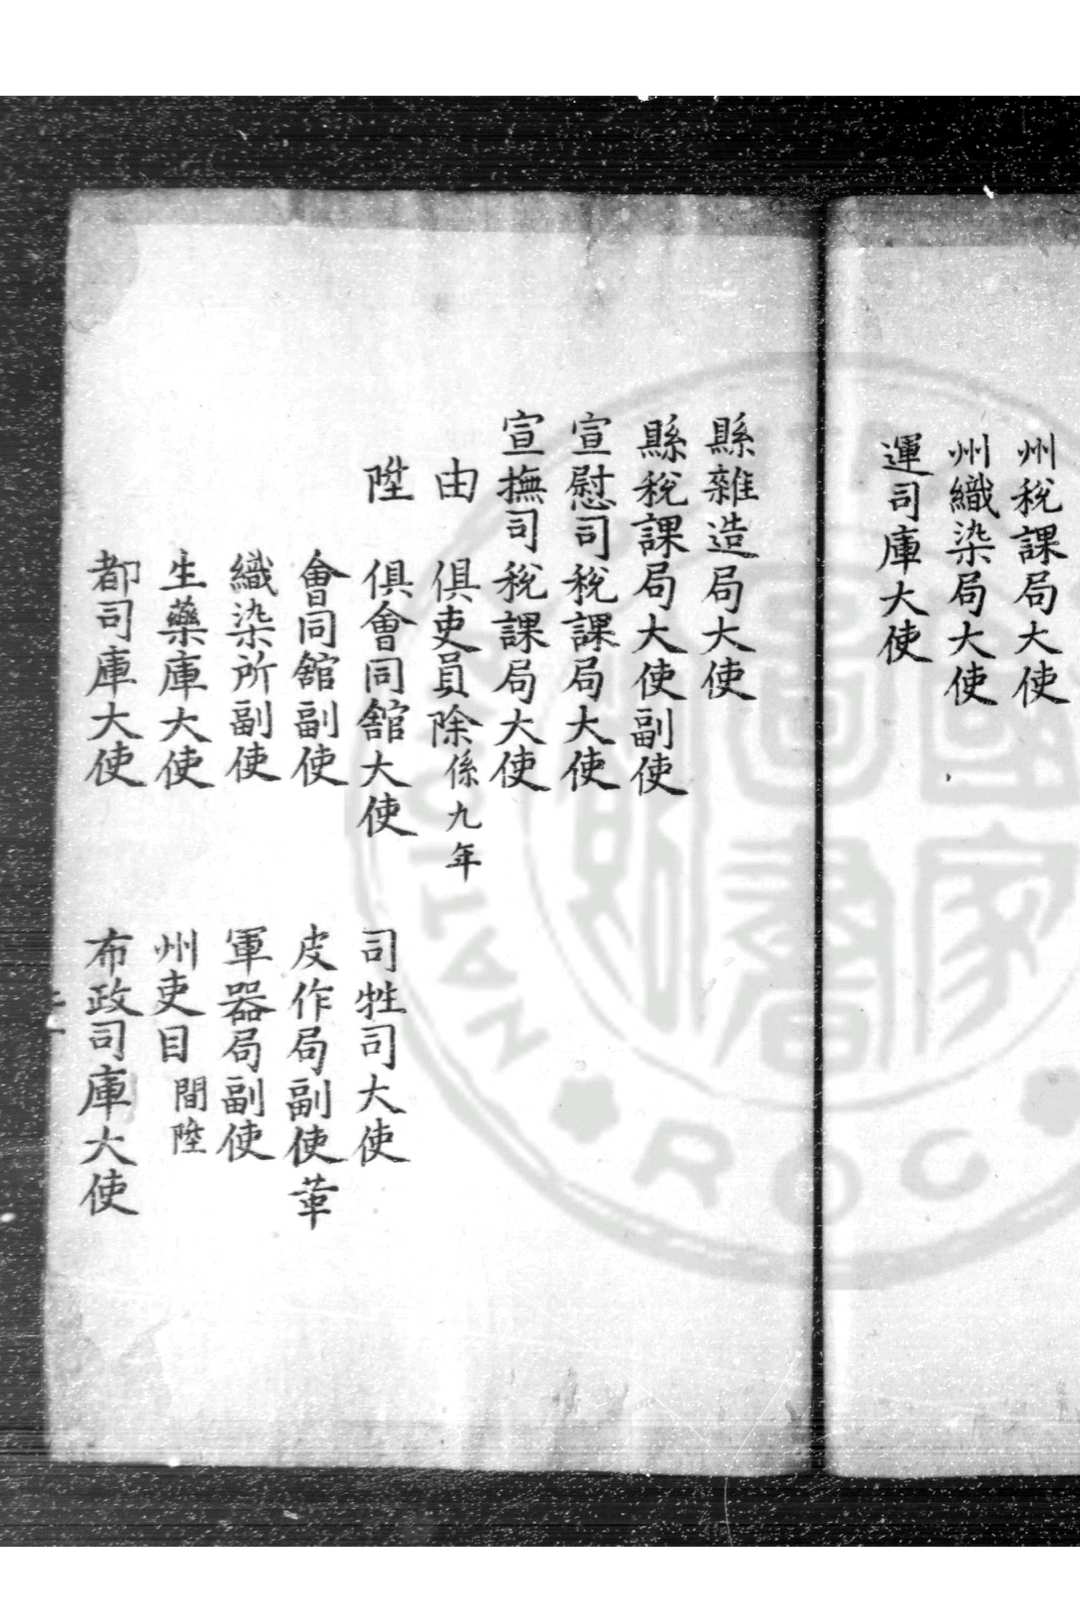 州稅課局大使
州織染局大使
運司庫大使
縣雜造局大使
縣稅課局大使副使
宣慰司稅課局大使
宣撫司稅課局大使
由 俱吏員除係九年
陞 俱會同舘大使 司牲司大使
會同舘副使 皮作局副使革
織染所副使 軍器局副使
生藥庫大使 州吏目間陞
都司庫大使 布政司庫大使
國家圖書
ROC